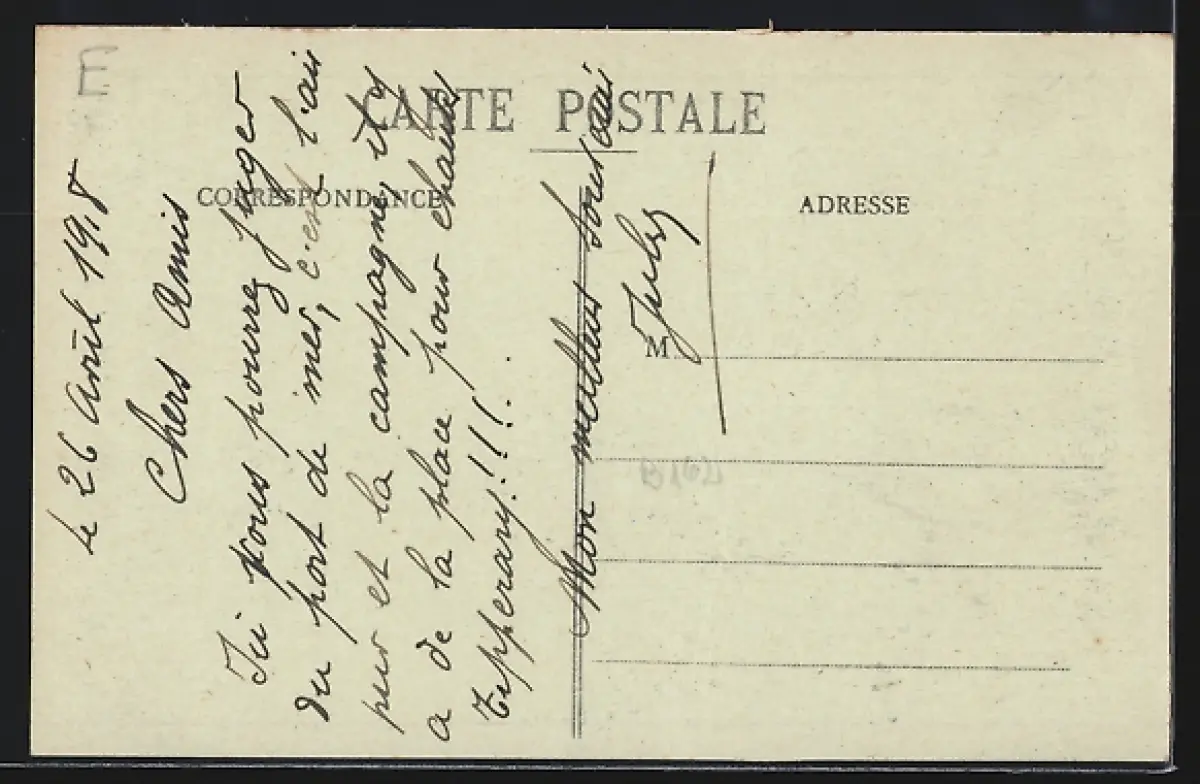 E
CARTE POSTALE
CORRESPONDANCE
ADRESSE
M
B162
Le 26 Avril 1918
Chers Amis
Ici vous pourrez juger
du port de mer, c'est l'air
pur et la campagne, il y
a de la place pour chanter
Tipperary!!!.
Mon meilleur souvenir
Jules